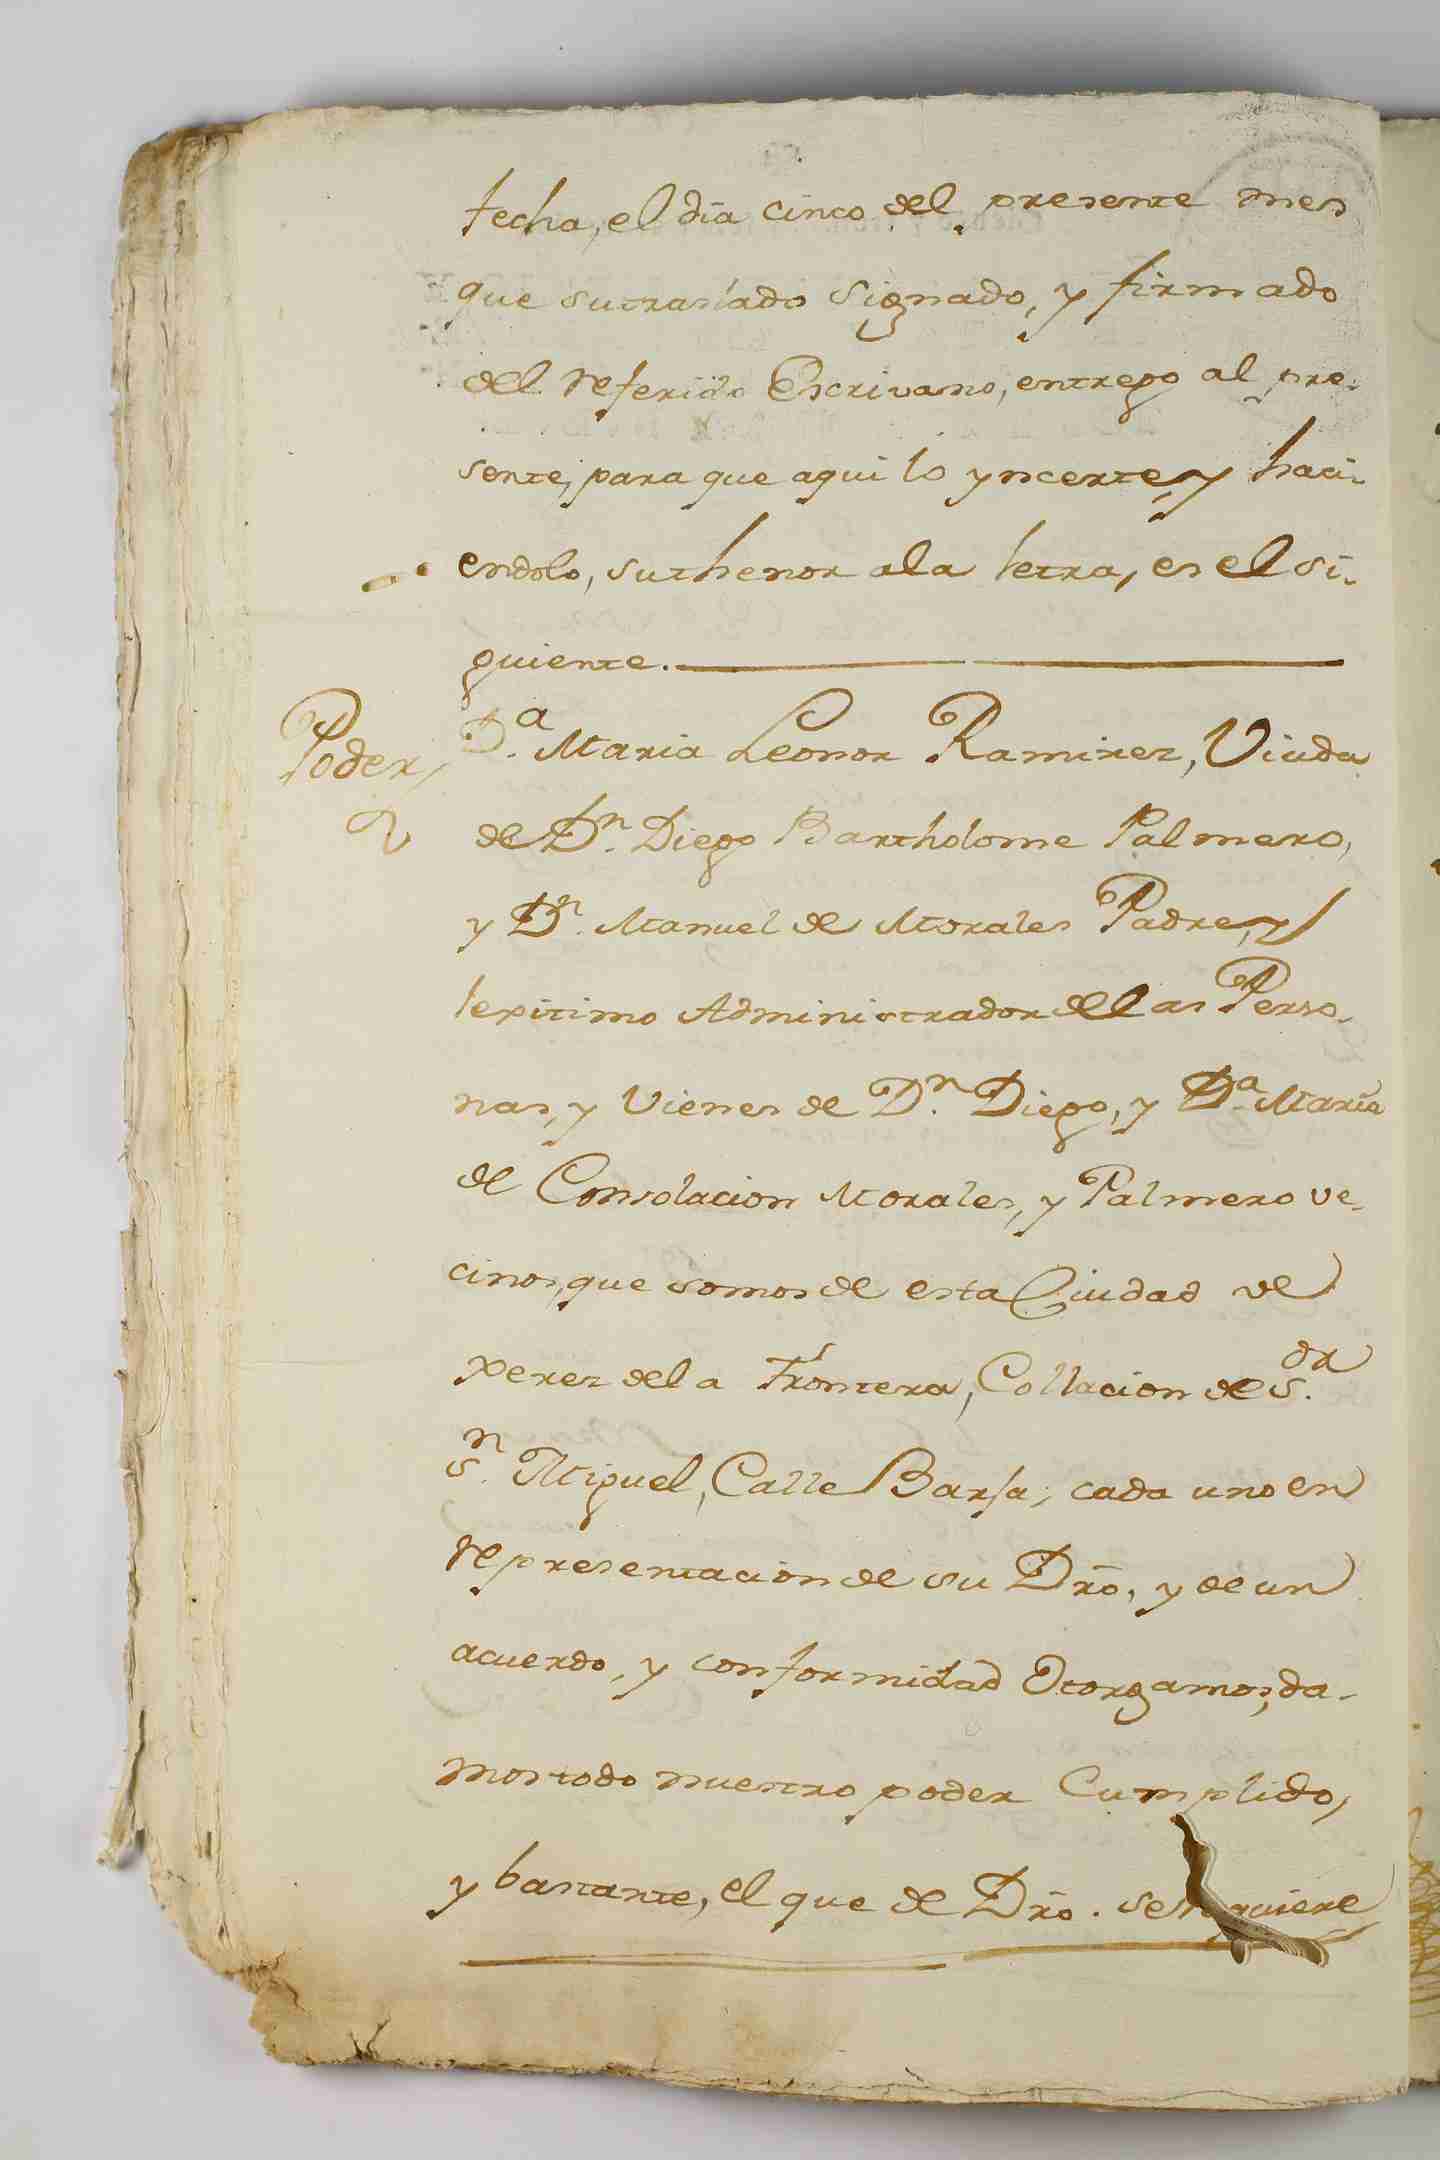 fecha, el dia cinco del presente mes
que sutraslado signado, y firmado
del referido Escrivano, entrego al pre-
sente, para que aqui lo yncerte, y haci-
endolo, suthenor ala letra, es el si-
guiente.
Poder,
D.ª Maria Leonor Ramirez, Viuda
de D.n Diego Bartholome Palmero,
y D.n Manuel de Morales Padre, y
lexitimo Administrador delas Perso-
nas, y Vienes de D.n Diego, y D.ª Maria
de Consolacion Morales, y Palmero ve-
cinos, que somos de esta Ciudad de
Xerez dela Frontera, Collacion de S.or
S.n Miguel, Calle Barja, cada uno en
representacion de su Dro, y de un
acuerdo, y conformidad Otorgamos, da-
mos todo nuestro poder Cumplido,
y bastante, el que de Dro. se requiere